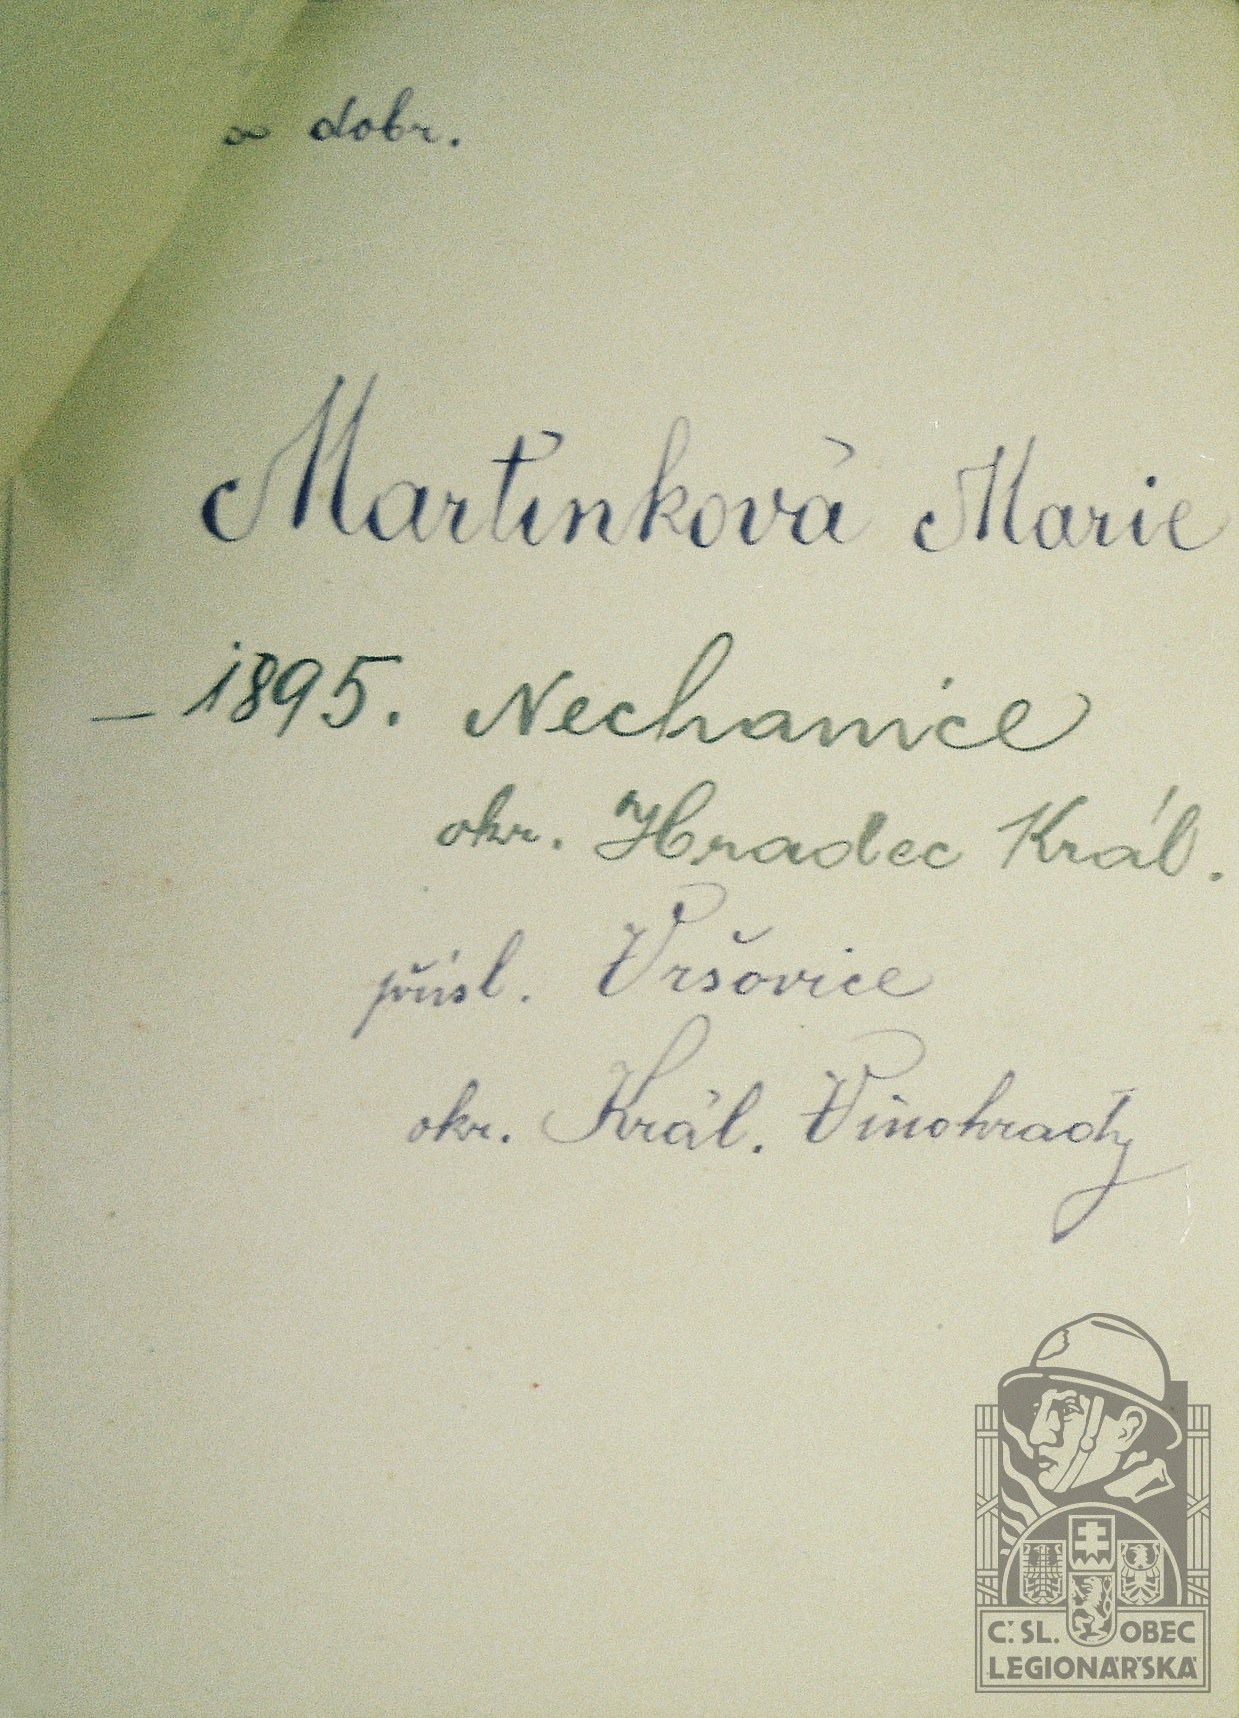 dobr.
Martínková Marie
— 1895. Nechanice
okr. Hradec Král.
přísl. Vršovice
okr. Král. Vinohrady
Č. SL. OBEC
LEGIONÁŘSKÁ